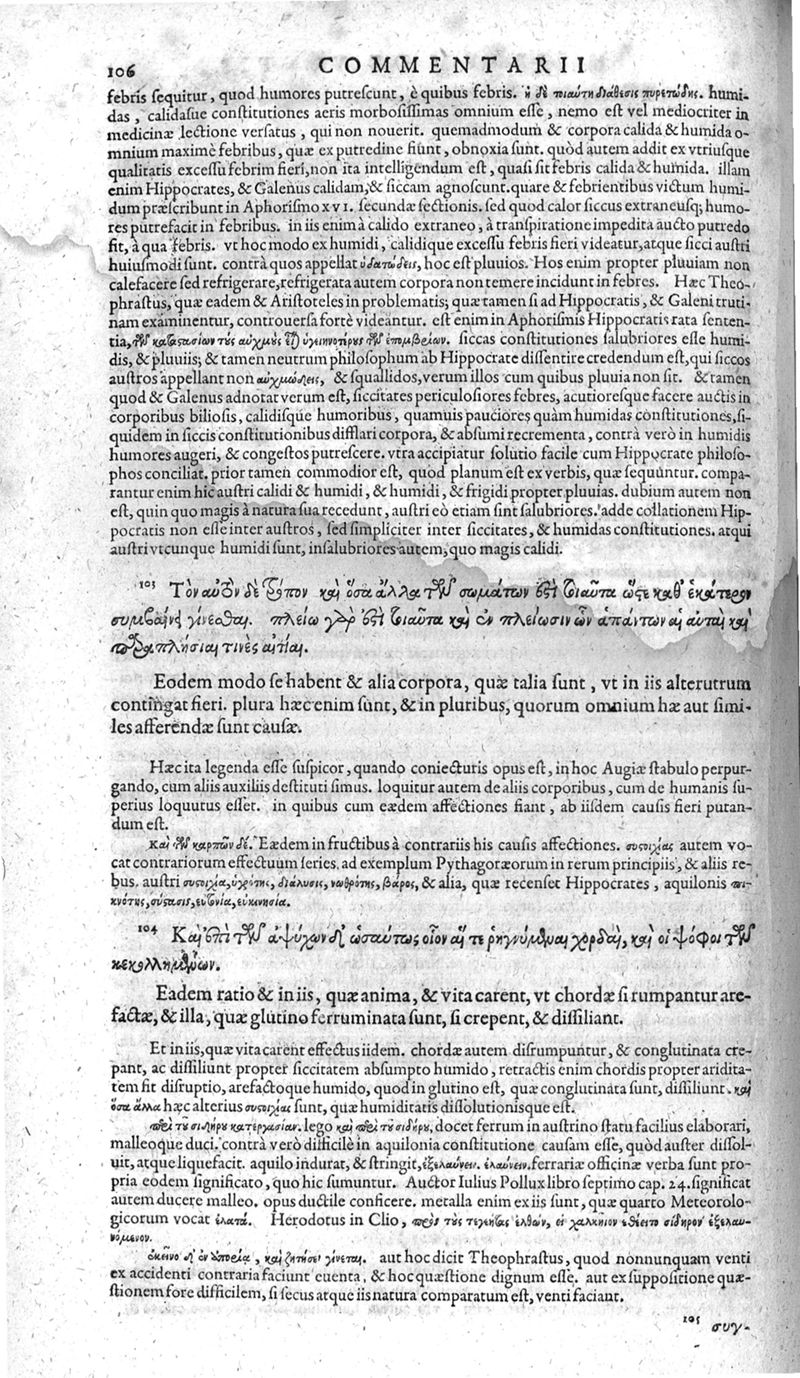 106 COMMENTARII
febris sequitur, quod humores putrescunt, è quibus febris. ἡ δὲ τοιαύτη διάθεσις πυρετώδης. humi-
das, calidasue constitutiones aeris morbosissimas omnium esse, nemo est vel mediocriter in
medicinæ lectione versatus, qui non nouerit. quemadmodum & corpora calida & humida o-
mnium maximè febribus, quæ ex putredine fiunt, obnoxia sunt. quòd autem addit ex vtriusque
qualitatis excessu febrim fieri, non ita intelligendum est, quasi sit febris calida & humida. illam
enim Hippocrates, & Galenus calidam, & siccam agnoscunt. quare & febrientibus victum humi-
dum præscribunt in Aphorismo XVI. secundæ sectionis. sed quod calor siccus extraneusq; humo-
res putrefacit in febribus. in iis enim à calido extraneo, à transpiratione impedita aucto putredo
fit, à qua febris. vt hoc modo ex humidi, calidique excessu febris fieri videatur, atque sicci austri
huiusmodi sunt. contrà quos appellat ὑδατώδεις, hoc est pluuios. Hos enim propter pluuiam non
calefacere sed refrigerare, refrigerata autem corpora non temere incidunt in febres. Hæc Theo-
phrastus, quæ eadem & Aristoteles in problematis; quæ tamen si ad Hippocratis, & Galeni truti-
nam examinentur, controuersa fortè videantur. est enim in Aphorismis Hippocratis rata senten-
tia, τῶν καταστασίων τοὺς αὐχμοὺς εἶναι ὑγιεινοτέρους τῶν ἐπομβρίων. siccas constitutiones salubriores esse humi-
dis, & pluuiis; & tamen neutrum philosophum ab Hippocrate dissentire credendum est, qui siccos
austros appellant non αὐχμώδεις, & squallidos, verum illos cum quibus pluuia non sit. & tamen
quod & Galenus adnotat verum est, siccitates periculosiores febres, acutioresque facere auctis in
corporibus biliosis, calidisque humoribus, quamuis pauciores quàm humidas constitutiones, si-
quidem in siccis constitutionibus difflari corpora, & absumi recrementa, contrà verò in humidis
humores augeri, & congestos putrescere. vtra accipiatur solutio facile cum Hippocrate philoso-
phos conciliat. prior tamen commodior est, quòd planum est ex verbis, quæ sequuntur. compa-
rantur enim hic austri calidi & humidi, & humidi, & frigidi propter pluuias. dubium autem non
est, quin quo magis à natura sua recedunt, austri eò etiam sint salubriores. adde collationem Hip-
pocratis non esse inter austros, sed simpliciter inter siccitates, & humidas constitutiones. atqui
austri vtcunque humidi sunt, insalubriores autem, quo magis calidi.
103 Τὸν αὐτὸν δὲ τρόπον καὶ ὅσα ἄλλα τῶν σωμάτων ἐστὶ τοιαῦτα ὥστε καθ' ἑκάτερον
συμβαίνῃ γίνεσθαι. πλείω γὰρ ἐστὶ τοιαῦτα καὶ ἐν πλείωσιν ὧν ἁπάντων αἱ αὐταὶ καὶ
παραπλήσιαι τινὲς αἰτίαι.
Eodem modo se habent & alia corpora, quæ talia sunt, vt in iis alterutrum
contingat fieri. plura hæc enim sunt, & in pluribus, quorum omnium hæ aut simi-
les afferendæ sunt causæ.
Hæc ita legenda esse suspicor, quando coniecturis opus est, in hoc Augiæ stabulo perpur-
gando, cum aliis auxiliis destituti simus. loquitur autem de aliis corporibus, cum de humanis su-
perius loquutus esset. in quibus cum eædem affectiones fiant, ab iisdem causis fieri putan-
dum est.
Καὶ τῶν καρπῶν δέ. Eædem in fructibus à contrariis his causis affectiones. συστοιχίας autem vo-
cat contrariorum effectuum series, ad exemplum Pythagoræorum in rerum principiis, & aliis re-
bus. austri συστοιχία, ὑγρότης, διάλυσις, νωθρότης, βάρος, & alia, quæ recenset Hippocrates, aquilonis πυ-
κνότης, σύστασις, εὐτονία, εὐκινησία.
104 Καὶ ἐπὶ τῶν ἀψύχων δ' ὡσαύτως οἷον αἵ τε ῥηγνύμεναι χορδαὶ, καὶ οἱ ψόφοι τῶν
κεκολλημένων.
Eadem ratio & in iis, quæ anima, & vita carent, vt chordæ si rumpantur are-
factæ, & illa, quæ glutino ferruminata sunt, si crepent, & dissiliant.
Et in iis, quæ vita carent effectus iidem. chordæ autem disrumpuntur, & conglutinata cre-
pant, ac dissiliunt propter siccitatem absumpto humido, retractis enim chordis propter aridita-
tem fit disruptio, arefactoque humido, quod in glutino est, quæ conglutinata sunt, dissiliunt. καὶ
ὅσα ἄλλα hæc alterius συστοιχίας sunt, quæ humiditatis dissolutionisque est.
περὶ τοῦ σιδήρου κατεργασίαν. lego καὶ περὶ τοῦ σιδήρου, docet ferrum in austrino statu facilius elaborari,
malleoque duci. contrà verò difficilè in aquilonia constitutione causam esse, quòd auster dissol-
uit, atque liquefacit. aquilo indurat, & stringit, ἐξελαύνειν. ἐλαύνειν. ferrariæ officinæ verba sunt pro-
pria eodem significato, quo hic sumuntur. Auctor Iulius Pollux libro septimo cap. 24. significat
autem ducere malleo. opus ductile conficere. metalla enim ex iis sunt, quæ quarto Meteorolo-
gicorum vocat ἐλατά. Herodotus in Clio, πρὸς τοὺς τεγεήτας ἐλθὼν, ἐς χαλκήιον ἐθεεῖτο σίδηρον ἐξελαυ-
νόμενον.
ἐκεῖνο δ' ἐν ἀπορίᾳ, καὶ ζητήσει γίνεται. aut hoc dicit Theophrastus, quod nonnunquam venti
ex accidenti contraria faciunt euenta, & hoc quæstione dignum esse. aut ex suppositione quæ-
stionem fore difficilem, si secus atque iis natura comparatum est, venti faciant.
105 συγ-